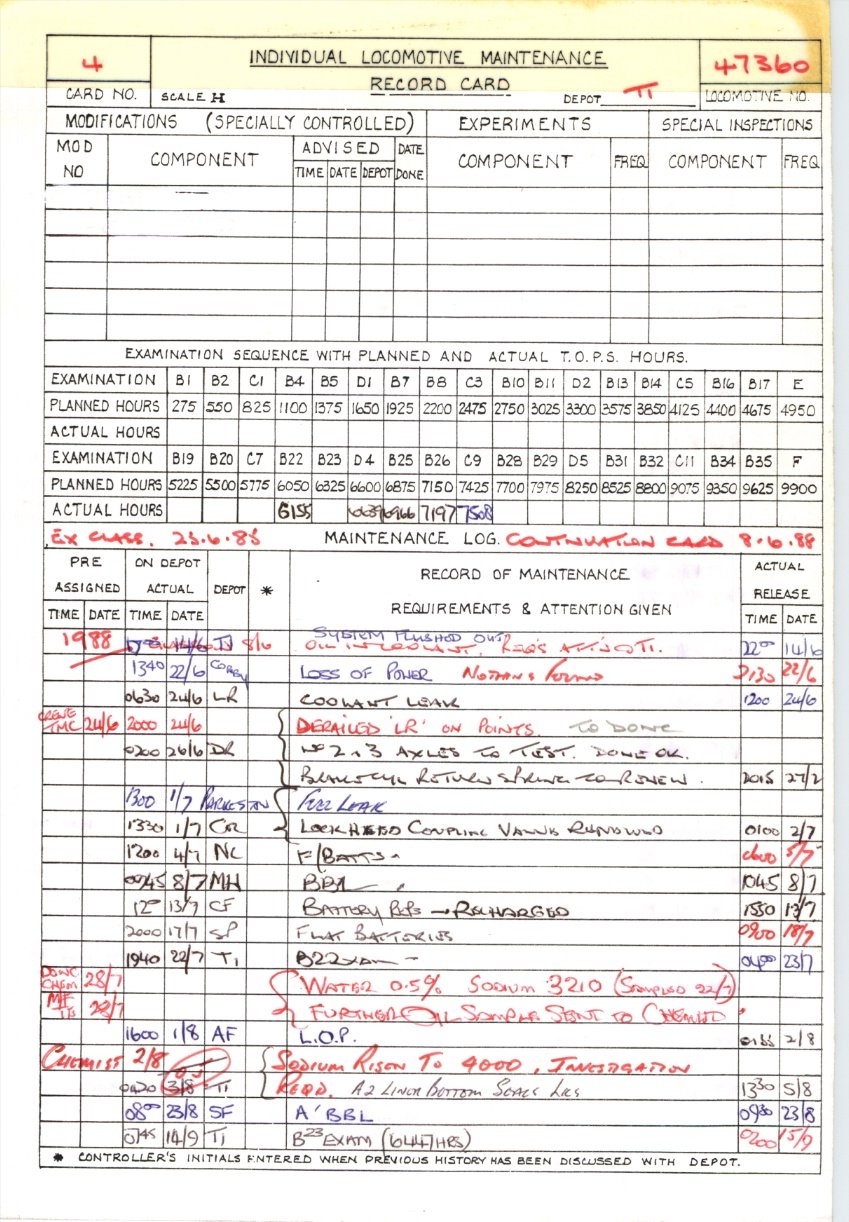 4 INDIVIDUAL LOCOMOTIVE MAINTENANCE 47360
CARD NO. SCALE H RECORD CARD DEPOT TI LOCOMOTIVE NO.
MODIFICATIONS (SPECIALLY CONTROLLED) EXPERIMENTS SPECIAL INSPECTIONS
MOD NO COMPONENT ADVISED DATE DONE COMPONENT FREQ COMPONENT FREQ
TIME DATE DEPOT
EXAMINATION SEQUENCE WITH PLANNED AND ACTUAL T.O.P.S. HOURS.
EXAMINATION B1 B2 C1 B4 B5 D1 B7 B8 C3 B10 B11 D2 B13 B14 C5 B16 B17 E
PLANNED HOURS 275 550 825 1100 1375 1650 1925 2200 2475 2750 3025 3300 3575 3850 4125 4400 4675 4950
ACTUAL HOURS
EXAMINATION B19 B20 C7 B22 B23 D4 B25 B26 C9 B28 B29 D5 B31 B32 C11 B34 B35 F
PLANNED HOURS 5225 5500 5775 6050 6325 6600 6875 7150 7425 7700 7975 8250 8525 8800 9075 9350 9625 9900
ACTUAL HOURS 6155 6966 7197 7508
EX CLASS. MAINTENANCE LOG. CONTINUATION CARD 8.6.88
PRE ASSIGNED ON DEPOT ACTUAL DEPOT * RECORD OF MAINTENANCE REQUIREMENTS & ATTENTION GIVEN ACTUAL RELEASE
TIME DATE TIME DATE TIME DATE
SYSTEM FLUSHED OUT
1988 8/6 OIL IN COOLANT. TI. 22°° 14/6
1340 22/6 LOSS OF POWER NOTHING FOUND 2130 22/6
0630 24/6 LR COOLANT LEAK 1200 24/6
CREWE TMC 24/6 2000 24/6 DERAILED 'LR' ON POINTS. TO DONE
0200 26/6 DR No 2 & 3 AXLES TO TEST. DONE OK.
RETURN SPRING TO RENEW. 2015 27/2
1300 1/7 PARKESTON FUEL LEAK
1330 1/7 CR LOCKHEED COUPLING VALVE RENEWED 0100 2/7
1200 4/7 NC F/BATTS 5/7
0945 8/7 MH BBL 1045 8/7
12°° 13/7 CF BATTERY RECHARGED 1550 13/7
2000 17/7 SP FLAT BATTERIES 0900 18/7
1940 22/7 TI B22 EXAM 0400 23/7
DONC CHEM 28/7 WATER 0.5% SODIUM 3210 (SAMPLED 22/7)
28/7 FURTHER OIL SAMPLE SENT TO CHEMIST
1600 1/8 AF L.O.P. 2/8
CHEMIST 2/8 SODIUM RISEN TO 4000, INVESTIGATION
3/8 TI REQD. A2 LINER BOTTOM SEALS 1330 5/8
08°° 23/8 SF A' BBL 0930 23/8
0745 14/9 TI B23 EXAM (6447 HRS) 0200 15/9
* CONTROLLER'S INITIALS ENTERED WHEN PREVIOUS HISTORY HAS BEEN DISCUSSED WITH DEPOT.